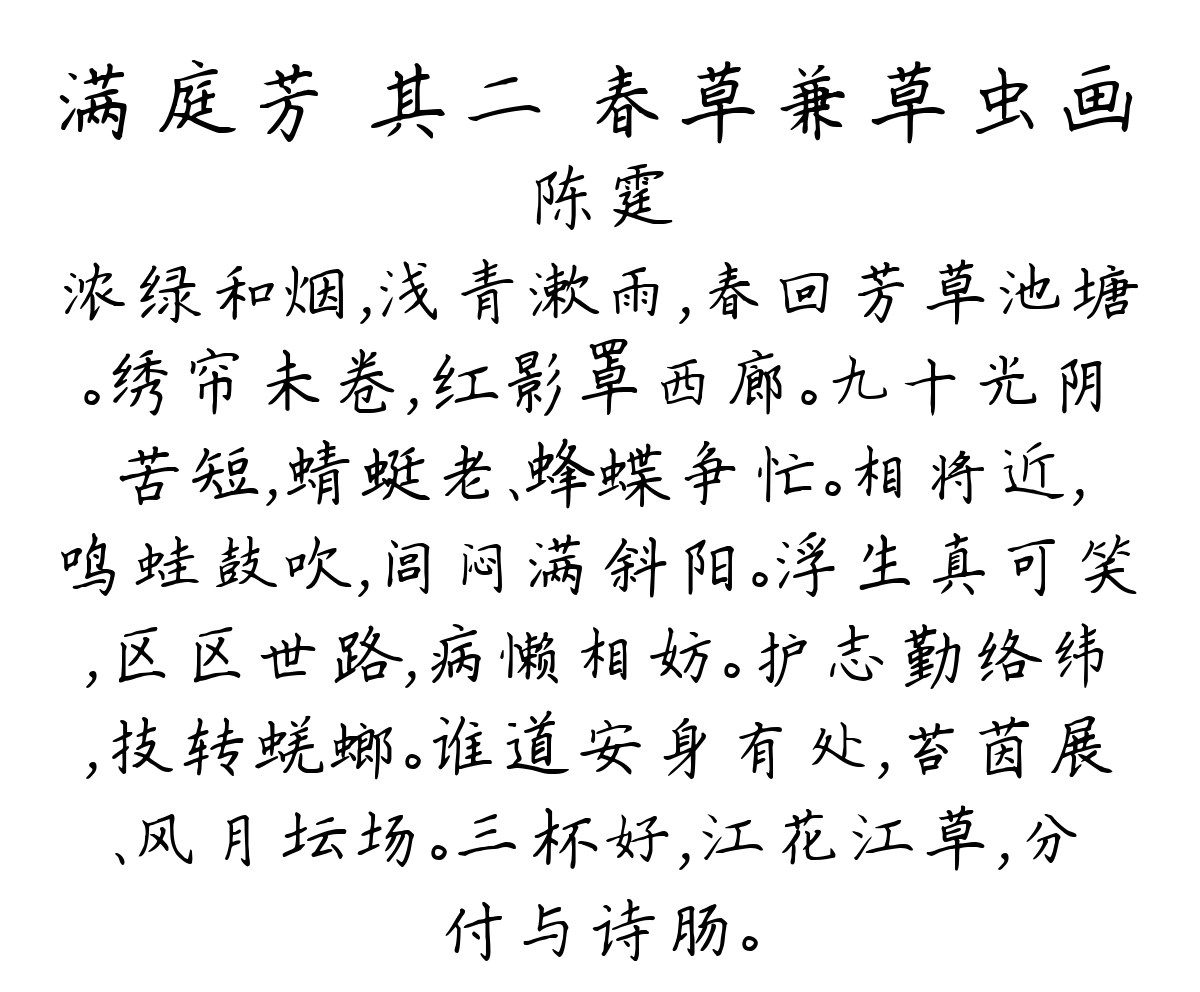 满庭芳 其二 春草兼草虫画
陈霆
浓绿和烟,浅青漱雨,春回芳草池塘
。绣帘未卷,红影罩西廊。九十光阴
苦短,蜻蜓老、蜂蝶争忙。相将近,
鸣蛙鼓吹,闾闷满斜阳。浮生真可笑
,区区世路,病懒相妨。护志勤络纬
,技转蜣螂。谁道安身有处,苔茵展
、风月坛场。三杯好,江花江草,分
付与诗肠。